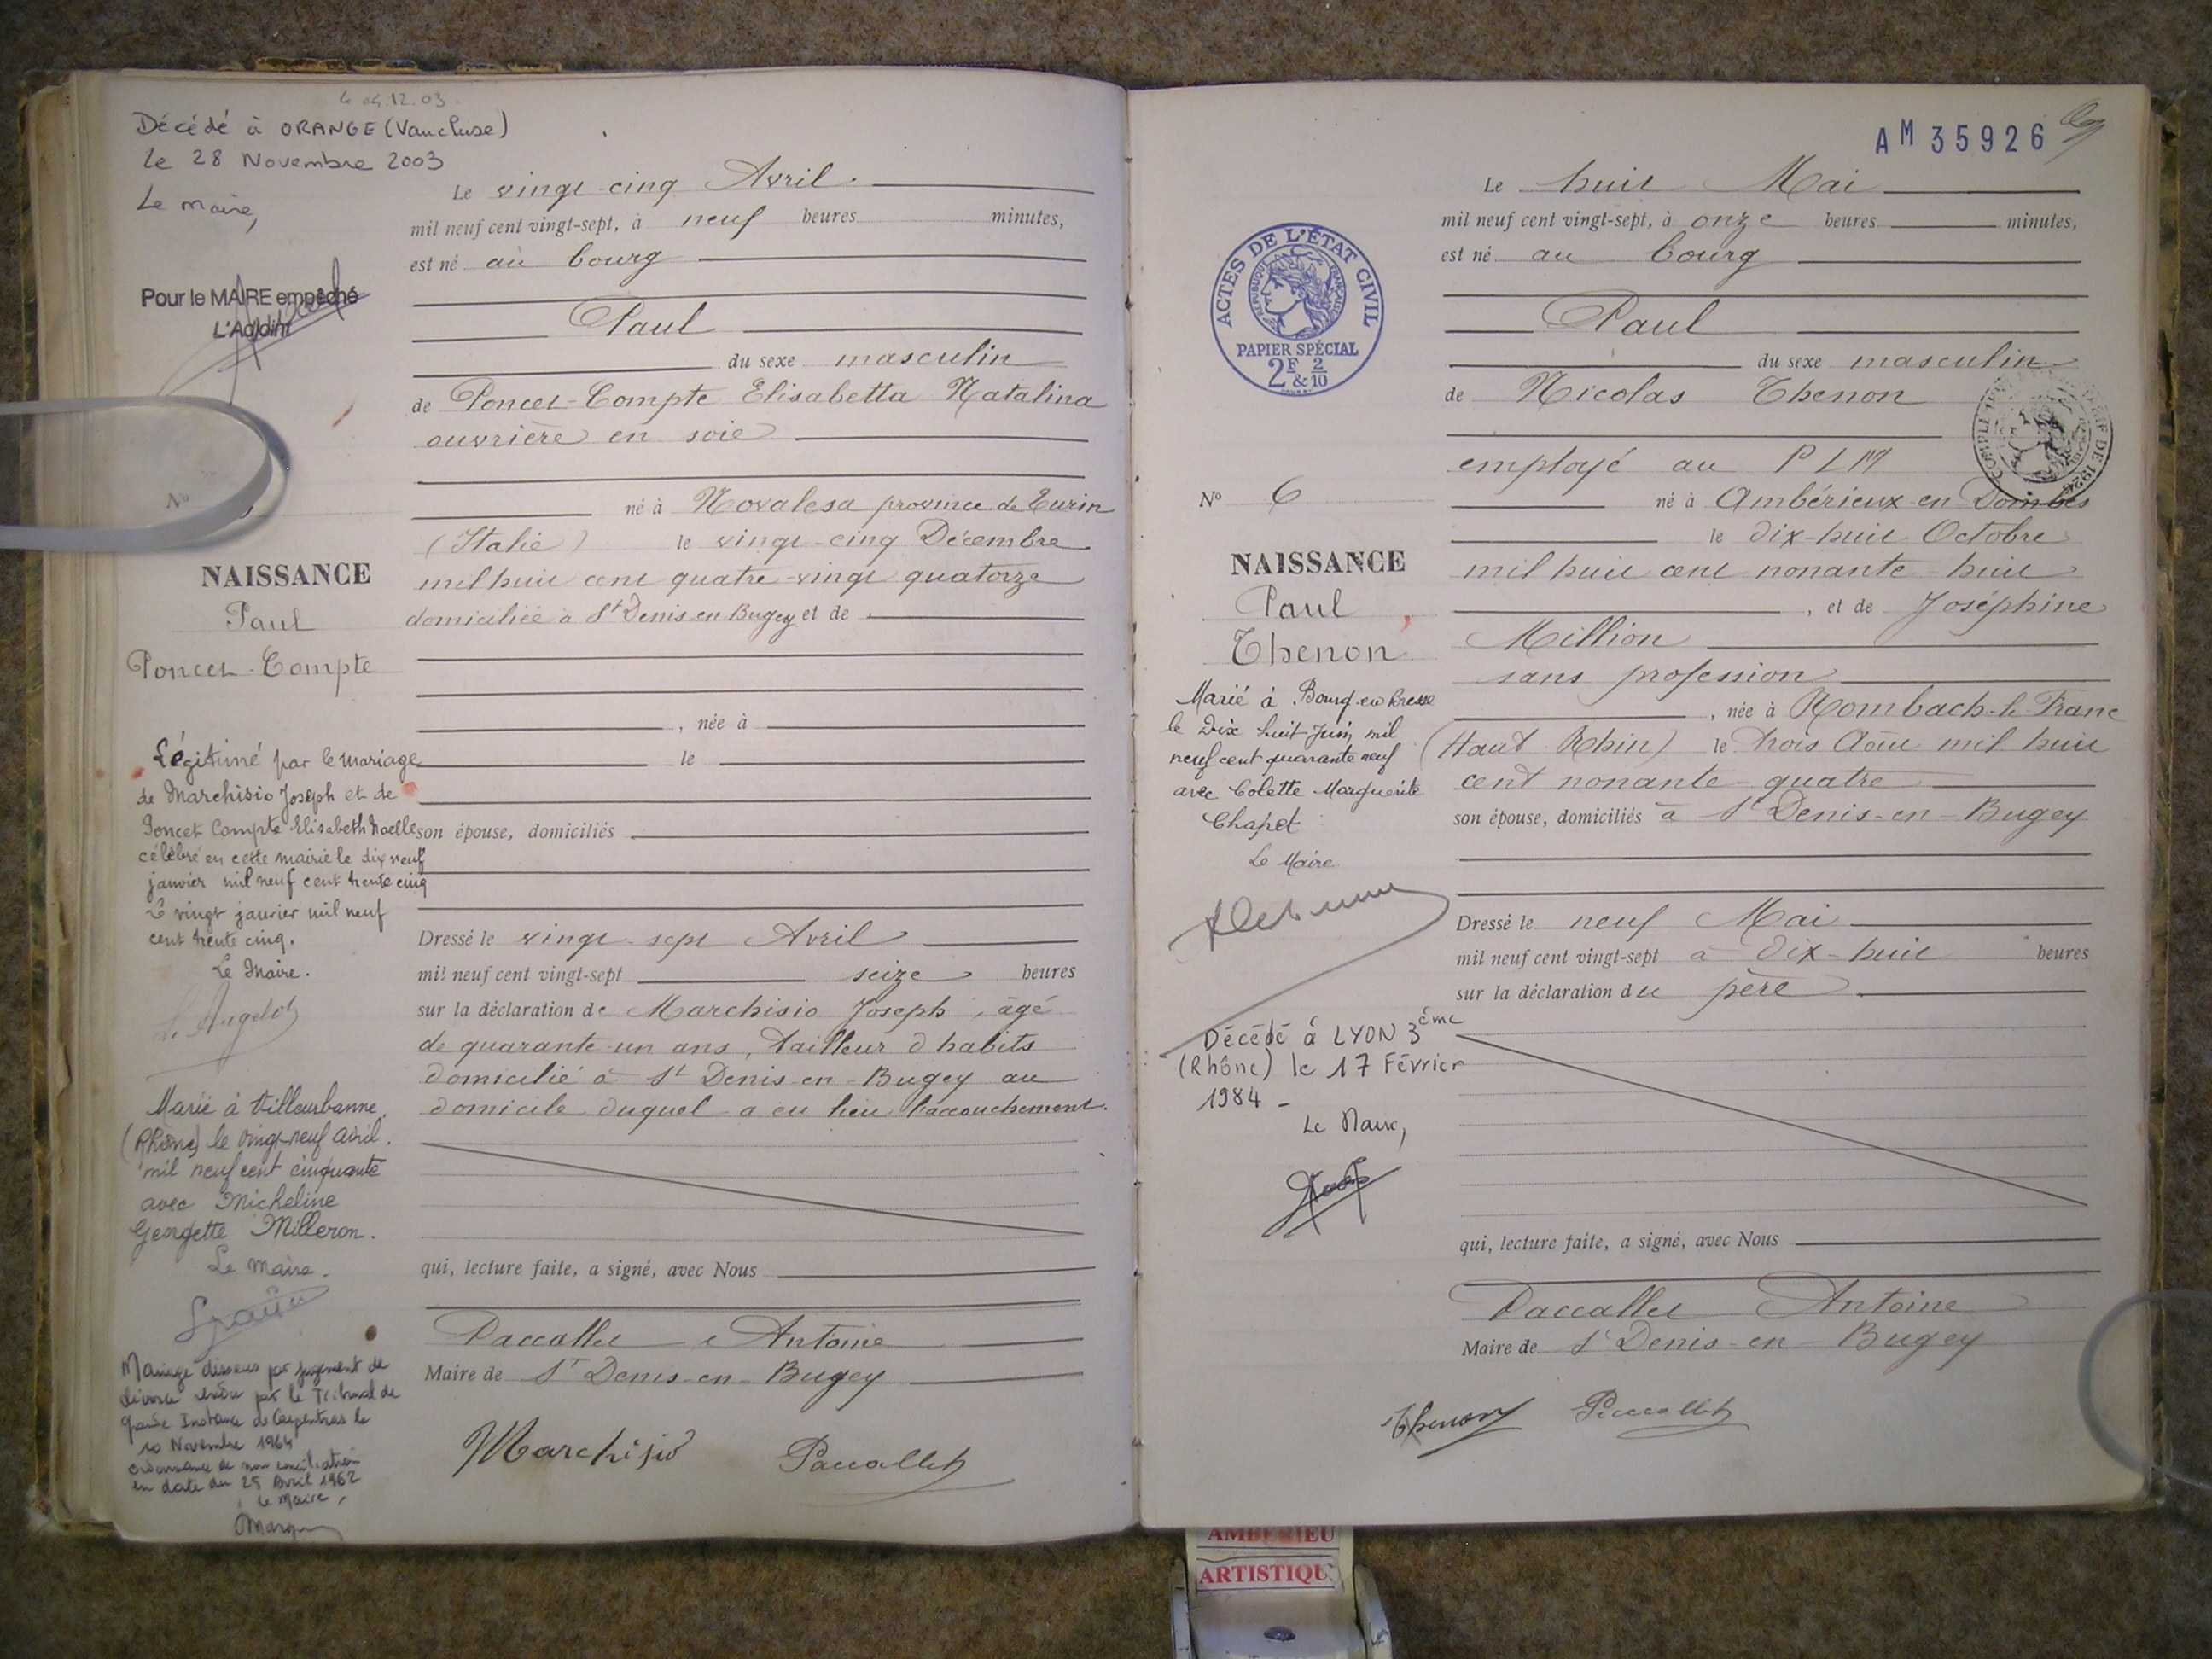 Le 04.12.03
Décédé à ORANGE (Vaucluse)
le 28 Novembre 2003
Le maire,
Pour le MAIRE empêché
L'Adjoint
N°
NAISSANCE
Paul
Poncet-Compte
Légitimé par le mariage
de Marchisio Joseph et de
Poncet Compte Elisabeth Noelle
célébré en cette mairie le dix neuf
janvier mil neuf cent trente cinq
Le vingt janvier mil neuf
cent trente cinq.
Le Maire.
Marié à Villeurbanne
(Rhône) le vingt-neuf avril
mil neuf cent cinquante
avec Micheline
Georgette Milleron.
Le maire.
Mariage dissous par jugement de
divorce rendu par le Tribunal de
Grande Instance de Carpentras le
10 Novembre 1964
ordonnance de non conciliation
en date du 25 Avril 1962
Le Maire,
Le vingt-cinq Avril
mil neuf cent vingt-sept, à neuf heures minutes,
est né au bourg
Paul
du sexe masculin
de Poncet-Compte Elisabetta Natalina
ouvrière en soie
né à Novalesa province de Turin
(Italie) le vingt-cinq Décembre
mil huit cent quatre-vingt quatorze
domiciliée à St Denis en Bugey et de
, née à
le
son épouse, domiciliés
Dressé le vingt-sept Avril
mil neuf cent vingt-sept seize heures
sur la déclaration de Marchisio Joseph, âgé
de quarante-un ans, tailleur d'habits
domicilié à St Denis-en-Bugey au
domicile duquel a eu lieu l'accouchement.
qui, lecture faite, a signé, avec Nous
Paccallet Antoine
Maire de St Denis-en-Bugey
Marchisio Paccallet
AM 35926
ACTES DE L'ÉTAT CIVIL
RÉPUBLIQUE FRANÇAISE
PAPIER SPÉCIAL
2F & 2/10
N° 6
NAISSANCE
Paul
Thenon
Marié à Bourg-en-Bresse
le Dix huit Juin mil
neuf cent quarante neuf
avec Colette Marguerite
Chapet
Le Maire
Décédé à LYON 3ème
(Rhône) le 17 Février
1984 -
Le Maire,
Le huit Mai
mil neuf cent vingt-sept, à onze heures minutes,
est né au bourg
Paul
du sexe masculin
de Nicolas Thenon
employé au PLM
né à Ambérieux-en-Dombes
le dix-huit Octobre
mil huit cent nonante huit
, et de Joséphine
Million
sans profession
, née à Rombach-le-Franc
(Haut Rhin) le trois Août mil huit
cent nonante-quatre
son épouse, domiciliés à St Denis-en-Bugey
Dressé le neuf Mai
mil neuf cent vingt-sept à dix-huit heures
sur la déclaration du père
qui, lecture faite, a signé, avec Nous
Paccallet Antoine
Maire de St Denis-en-Bugey
Thenon Paccallet
AMBERIEU
ARTISTIQU